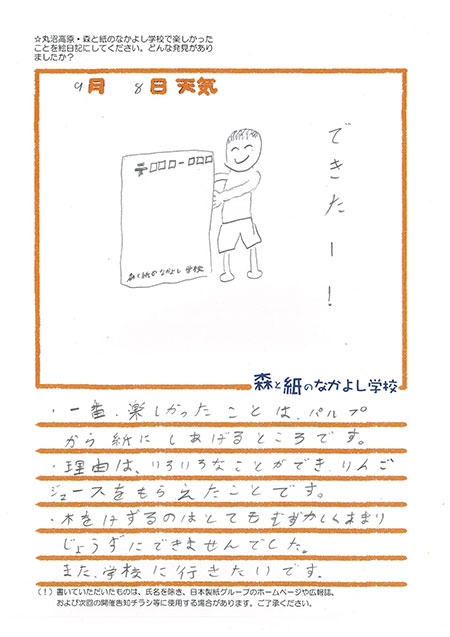 ☆丸沼高原・森と紙のなかよし学校で楽しかった
ことを絵日記にしてください。どんな発見があり
ましたか？
9月 8日 天気
できたー！
〒□□□-□□□
森と紙のなかよし学校
森と紙のなかよし学校
・一番、楽しかったことは、パルプ
から紙にしあげるところです。
・理由は、いろいろなことができ、りんご
ジュースをもらえたことです。
・木をけずるのはとてもむずかしくあまり
じょうずにできませんでした。
また、学校に行きたいです。
（！）書いていただいたものは、氏名を除き、日本製紙グループのホームページや広報誌、
および次回の開催告知チラシ等に使用する場合があります。ご了承ください。